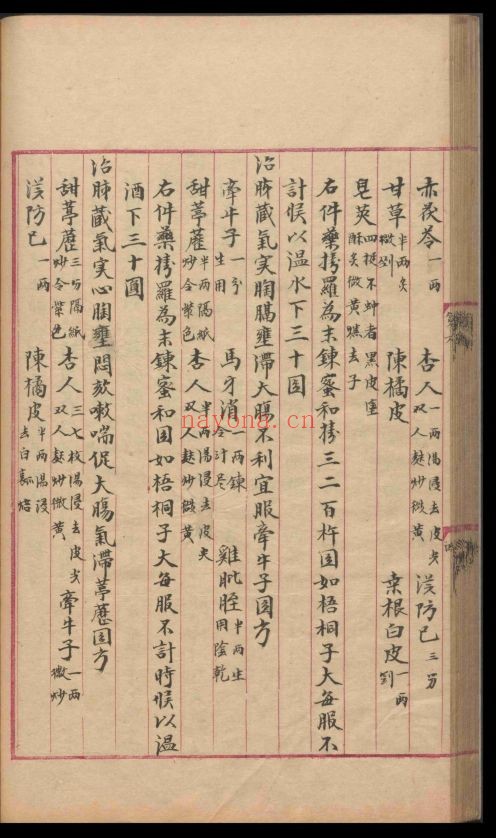 赤茯苓一两 杏人一两湯浸去皮尖双人麸炒微黄 漢防已三分
甘草半两炙微剉 陳橘皮 桒根白皮一两剉
皂莢四挺不蚛者黒皮塗酥炙微黄燋去子
右件藥擣羅為末鍊蜜和擣三二百杵圎如梧桐子大每服不
計候以温水下三十圎
治肺藏氣実胸膈壅滞大腸不利宜服牽牛子圎方
牽牛子一分生用 馬牙消一两鍊令汁尽 雞肶胵半两生用陰乾
甜葶藶半两隔紙炒令紫色 杏人半两湯浸去皮尖双人麸炒微黄
右件藥擣羅為末鍊蜜和圎如梧桐子大每服不計時候以温
酒下三十圎
治肺藏氣実心胸壅悶欬嗽喘促大腸氣滞葶藶圎方
甜葶藶三分隔紙炒令紫色 杏人三七枚湯浸去皮尖双人麸炒微黄 牽牛子一两微炒
漢防已一两 陳橘皮半两湯浸去白瓤焙
nayona.cn